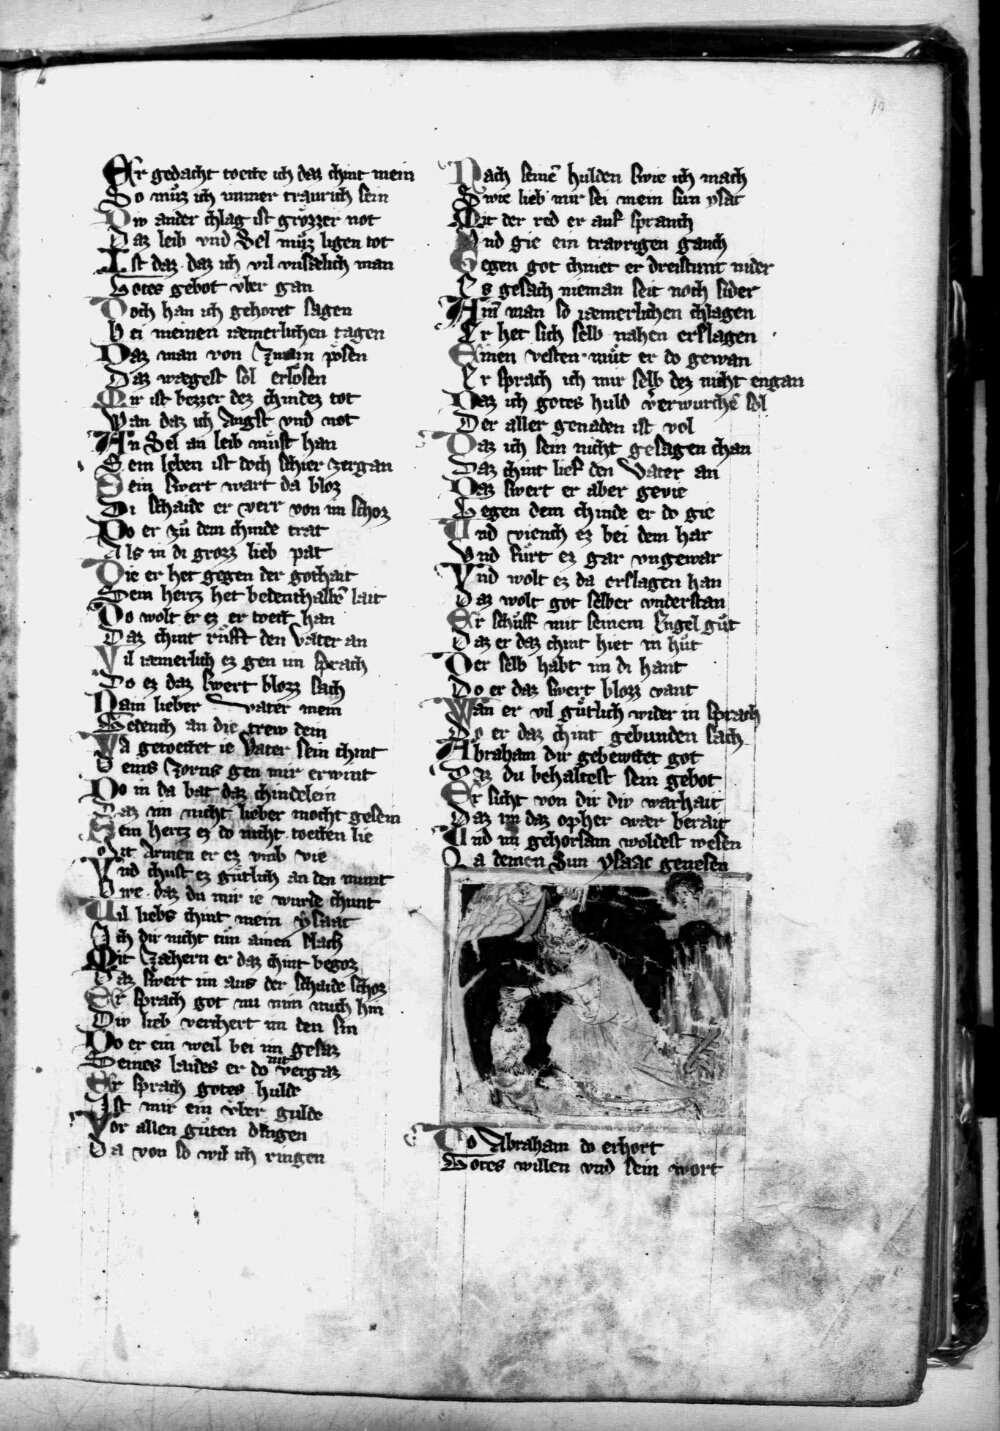 19
Er gedacht toette ich daz chint mein
So muͦz ich immer traurich sein
Div ander chlag ist groͤzzer not
Daz leib vnd Sel muͤz ligen tot
Ist daz daz ich vil vnsælich man
Gotes gebot vber gan
Doch han ich gehoret sagen
Bei meinen iæmerlichen tagen
Daz man von Zwain poͤsen
Daz wægest sol erloͤsen
Mir ist bezzer dez chindez tot
Wan daz ich Angst vnd not
An Sel an leib muͤst han
Sein leben ist doch schier zergan
Sein swert wart da bloz
Di schaide er verr von im schoz
Do er zuͦ dem chinde trat
Als in di grozz lieb pat
Die er het gegen der gothait
Sein hertz het bedenthalbn̄ lait
Do wolt er ez er toett han
Daz chint ruͤfft den Vater an
Vil iæmerlich ez gen im sprach
Do ez daz swert blozz sach
Nain lieber Vater mein
Gedench an die trew dein
Wa getoettet ie Vater sein chint
Deins Zorns gen mir erwint
Do in da bat daz chindelein
Daz im nicht lieber mocht gesein
Sein hertz ez do nicht toetten lie
Mit Armen er ez vmb vie
Vnd chust ez guͤtlich an den munt
Owe daz du mir ie wurde chunt
Vil liebs chint mein ysaac
Ich dir nicht tuͦn ainen slach
Mit Zæhern er daz chint begoz
Daz swert im aus der schaide schoz
Er sprach got nu nim mich hin
Div lieb verchert im den sin
Do er ein weil bei im gesaz
Seines laides er do mit vergaz
Er sprach gotes hulde
Ist mir ein vber gulde
Vor allen guͤten dingen
Da von so wil ich ringen
Nach seinē hulden swie ich mach
Swie lieb mir sei mein sun ysac
Mit der red er auf spranch
Vnd gie ein travrigen ganch
Gegen got chniet er dreistunt nider
Es gesach nieman seit noch sider
Ainē man so iæmerlichen chlagen
Er het sich selb nahen erslagen
Einen vesten muͦt er do gewan
Er sprach ich mir selb dez nicht engan
Daz ich gotes huld verwurchē sol
Der aller genaden ist vol
Daz ich sein nicht gesagen chan
Daz chint lief den Vater an
Daz swert er aber gevie
Gegen dem chinde er do gie
Vnd viench ez bei dem har
Vnd fuͦrt ez gar vngewar
Vnd wolt ez da erslagen han
Daz wolt got selber vnderstan
Er schuͤff mit seinem Engel guͦt
Daz er daz chint hiet in huͦt
Der selb habt im di hant
Do er daz swert blozz vant
Wan er vil guͤtlich wider in sprach
Do er daz chint gebunden sach
Abraham dir gebewtet got
Daz du behaltest sein gebot
Er sicht von dir div warhait
Daz im daz opher wær berait
Vnd im gehorsam woldest wesen
La deinen Sun ysaac genesen
Do Abraham do erhort
Gotes willen vnd sein wort